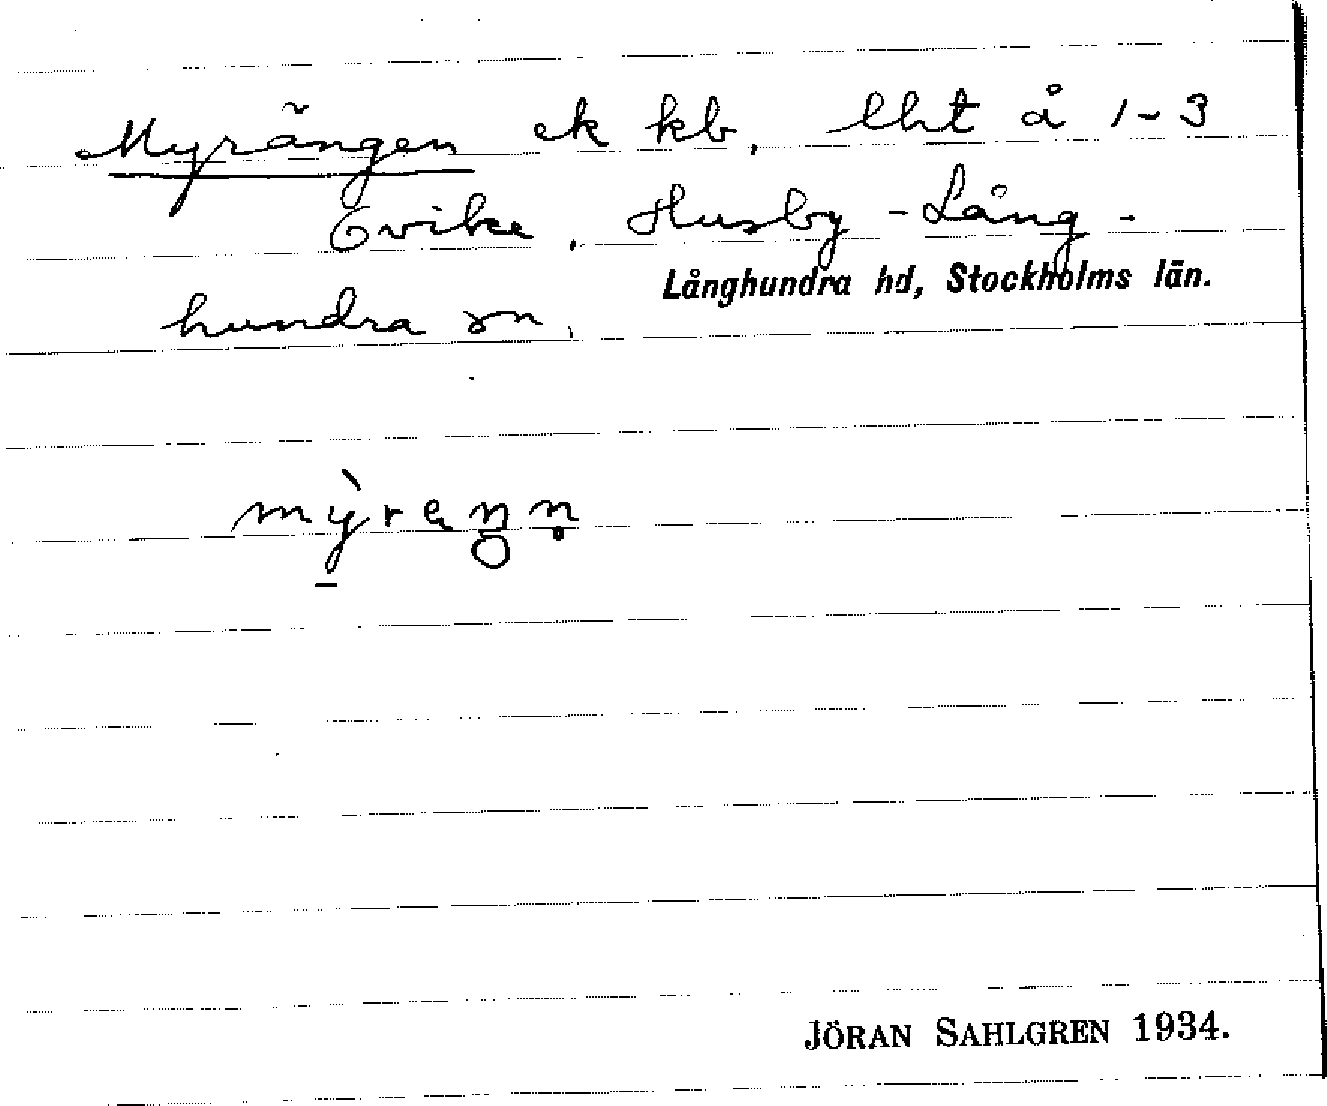 Myrängen ek kb, lht å 1-3
Evike, Husby-Lång-
Långhundra hd, Stockholms län.
hundra sn.
JÖRAN SAHLGREN 1934.